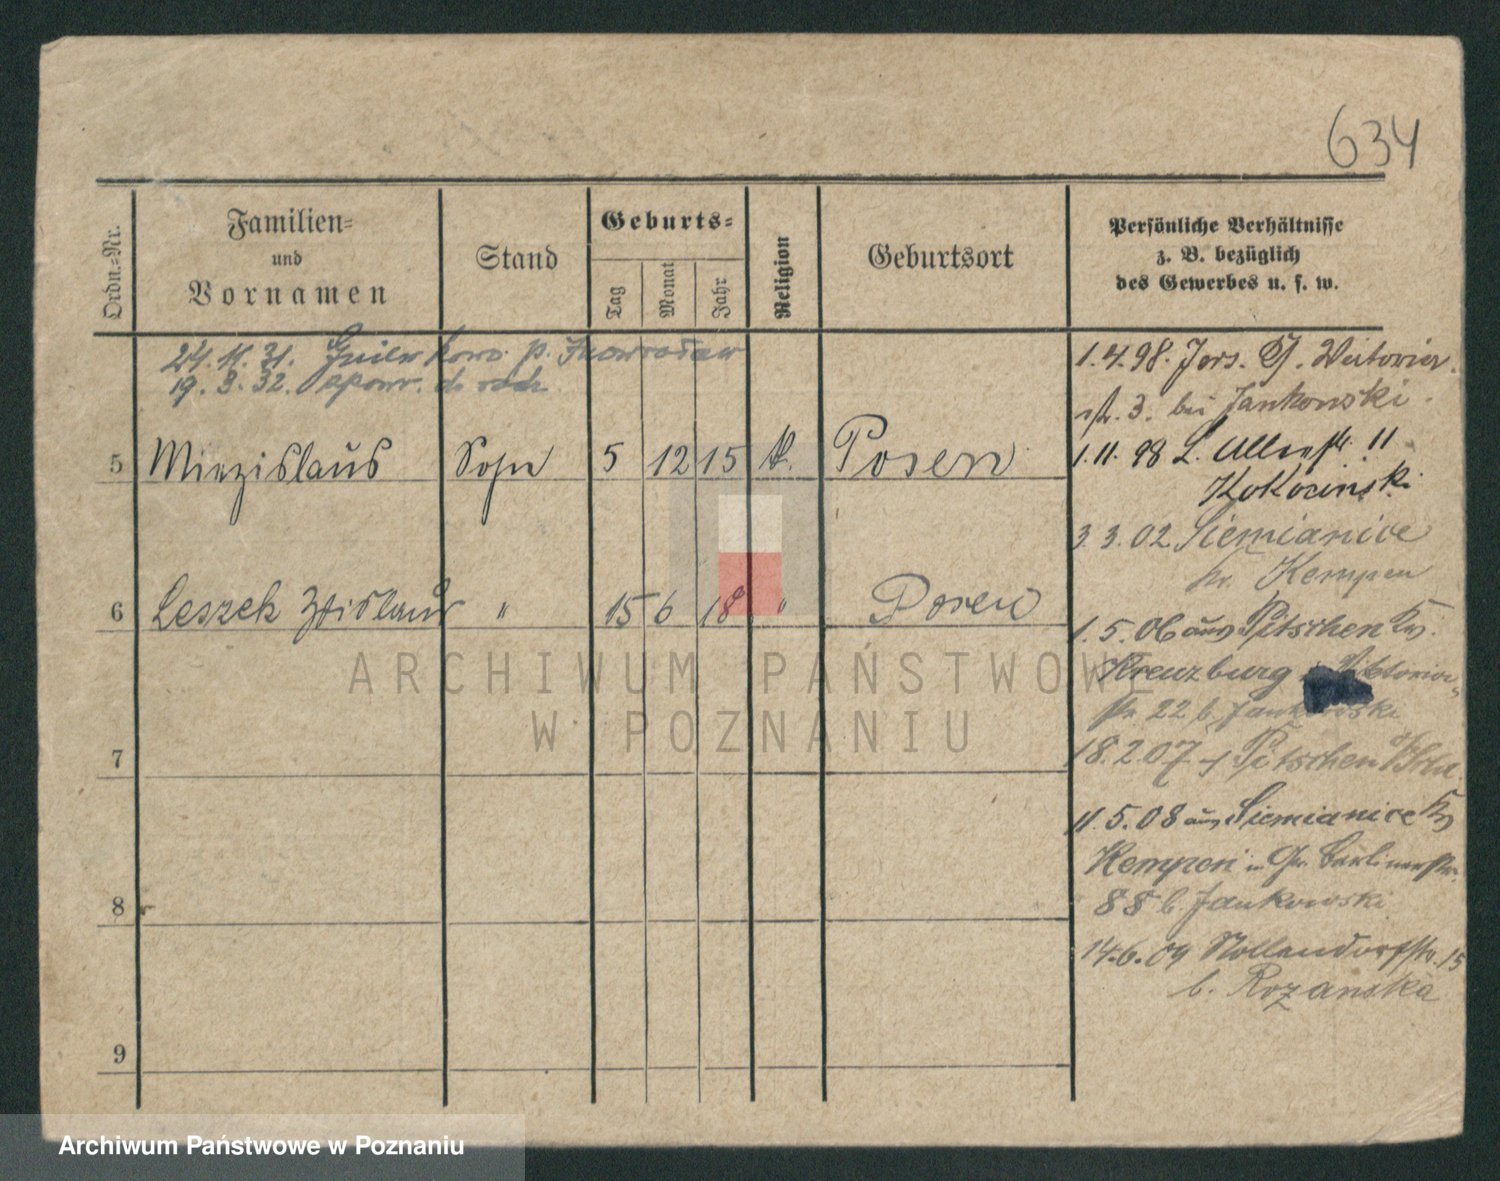 634
Ordn.-Nr.
Familien-
und
Vornamen
Stand
Geburts-
Tag
Monat
Jahr
Religion
Geburtsort
Persönliche Verhältnisse
z. B. bezüglich
des Gewerbes u. s. w.
24. 11. 31. Gniewkowo p. Inowrocław
19. 3. 32.
5 Miezislaus Sohn 5 12 15 k. Posen
6 Leszek Zdislaus " 15 6 18 " Posen
7
8
9
1.4.98.
str. 3. bei Jankowski.
1.11.98 11
Kokocinski
3.3.02 Siemianice
Kr. Kempen
1.5.06 aus Pitschen Kr.
Kreuzburg Viktoria-
str 22 b. Jankowski
18.2.07 Pitschen
11.5.08 aus Siemianice Kr
Kempen in Gr. Berlinerstr.
88 b. Jankowski
14.6.09 Nollendorfstr. 15
b. Rozanska
ARCHIWUM PAŃSTWOWE
W POZNANIU
Archiwum Państwowe w Poznaniu